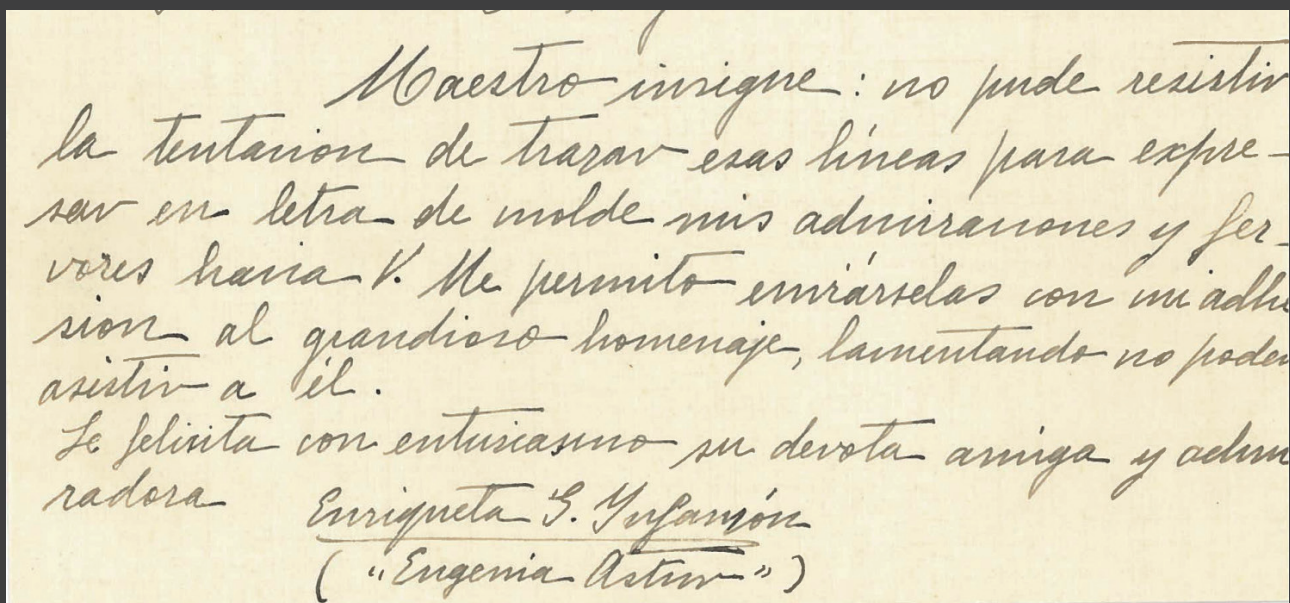 Maestro insigne: no pude resistir
la tentacion de trazar esas líneas para expre-
sar en letra de molde mis admiraciones y fer-
vores hacia V. Me permito enviárselas con mi adhe
sion al grandioso homenaje, lamentando no poder
asistir a él.
Le felicita con entusiasmo su devota amiga y admi
radora
Enriqueta G. Infanzón
("Eugenia Astur")